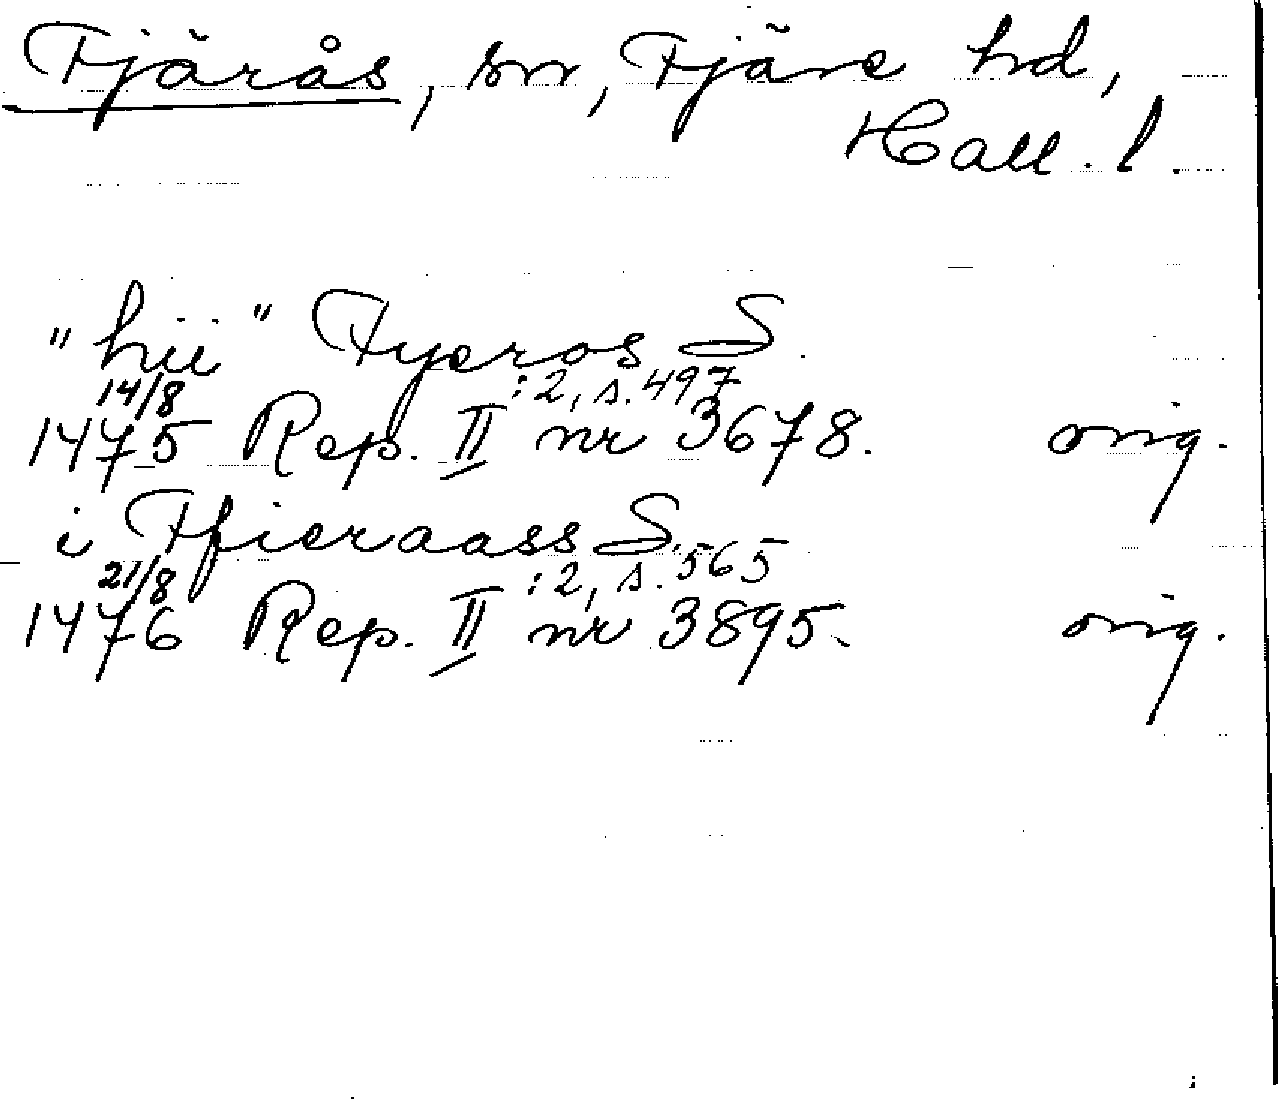 Tjärås, sn, Fjäre hd,
Hall. l.
"hii" Tyeros S.
14/8 :2, s. 497
1475 Rep. II nr 3678. orig.
i Thieraass S.
21/8 :2, s. 565
1476 Rep. II nr 3895. orig.